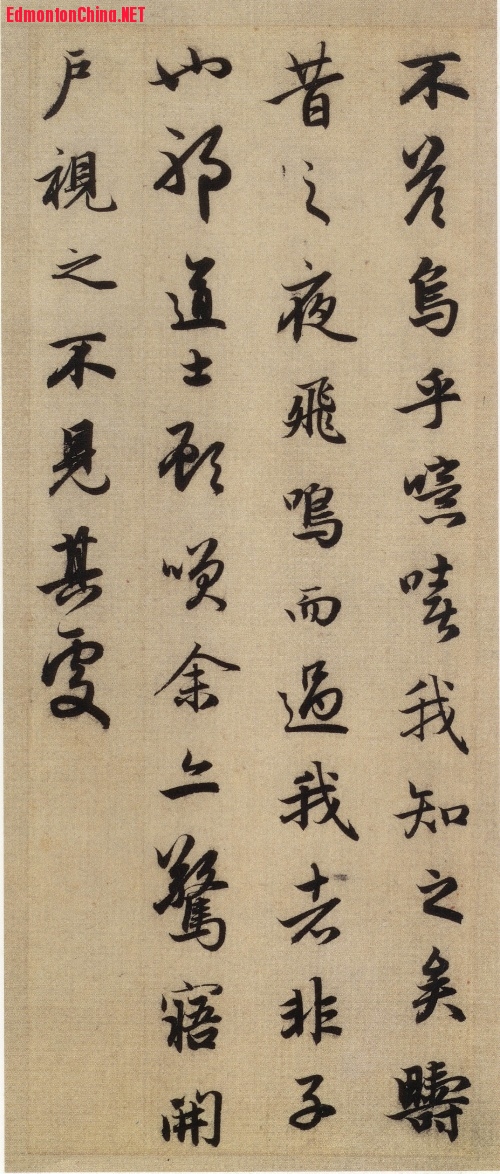 EdmontonChina.NET
不答烏乎噫嘻我知之矣疇
昔之夜飛鳴而過我者非子
也邪道士顧咲余亦驚寤開
戶視之不見其處